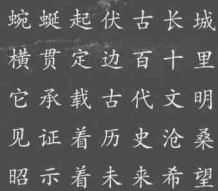 蜿蜒起伏古长城
横贯定边百十里
它承载古代文明
见证着历史沧桑
昭示着未来希望